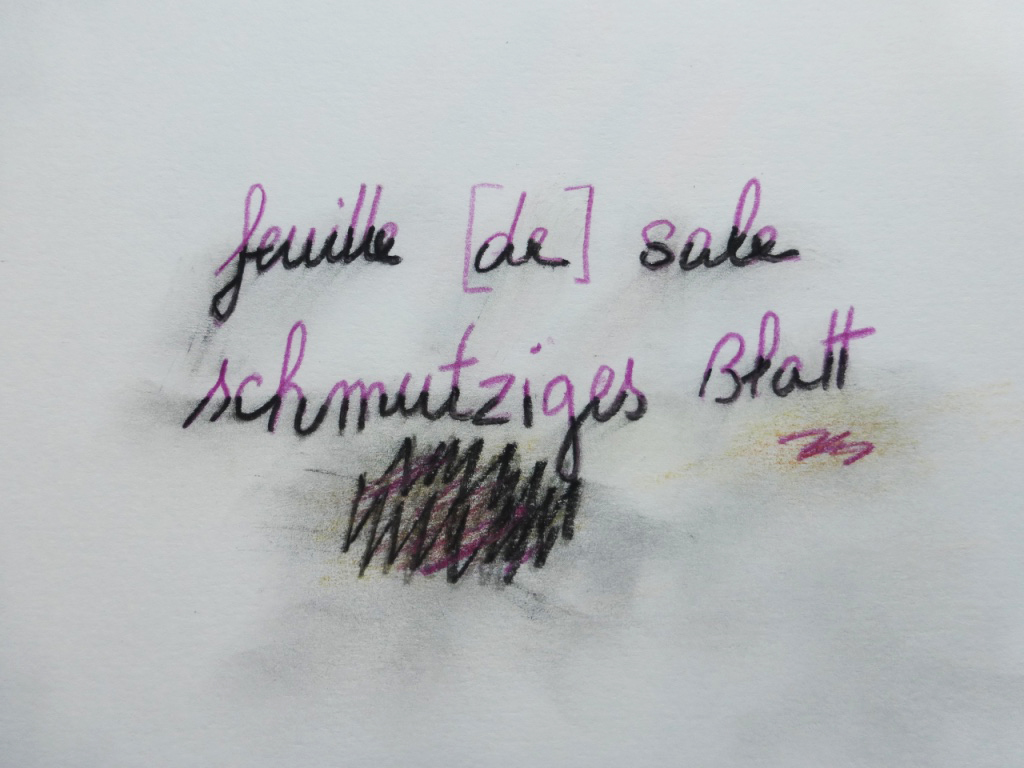 feuille [de] sale
schmutziges Blatt